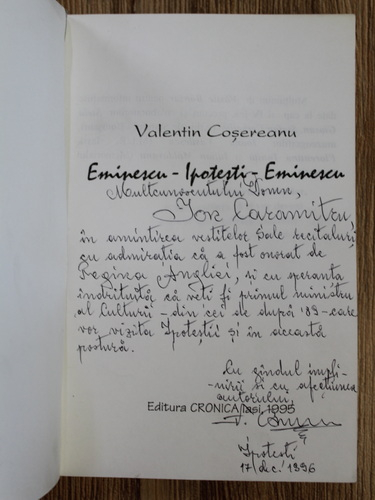 Valentin Coșereanu
Eminescu - Ipotești - Eminescu
Multcunoscutului Domn,
Ion Caramitru,
în amintirea vestitelor Sale recitaluri
cu admirația că a fost onorat de
Regina Angliei, și cu speranța
îndrituită că veți fi primul ministru
al Culturii - din cei de după '89 - care
vor vizita Ipoteștii și în această
postură.
Cu gîndul împli-
-nirii și cu afecțiunea
autorului,
Editura CRONICA Iași, 1995
Ipotești
17 dec. 1996